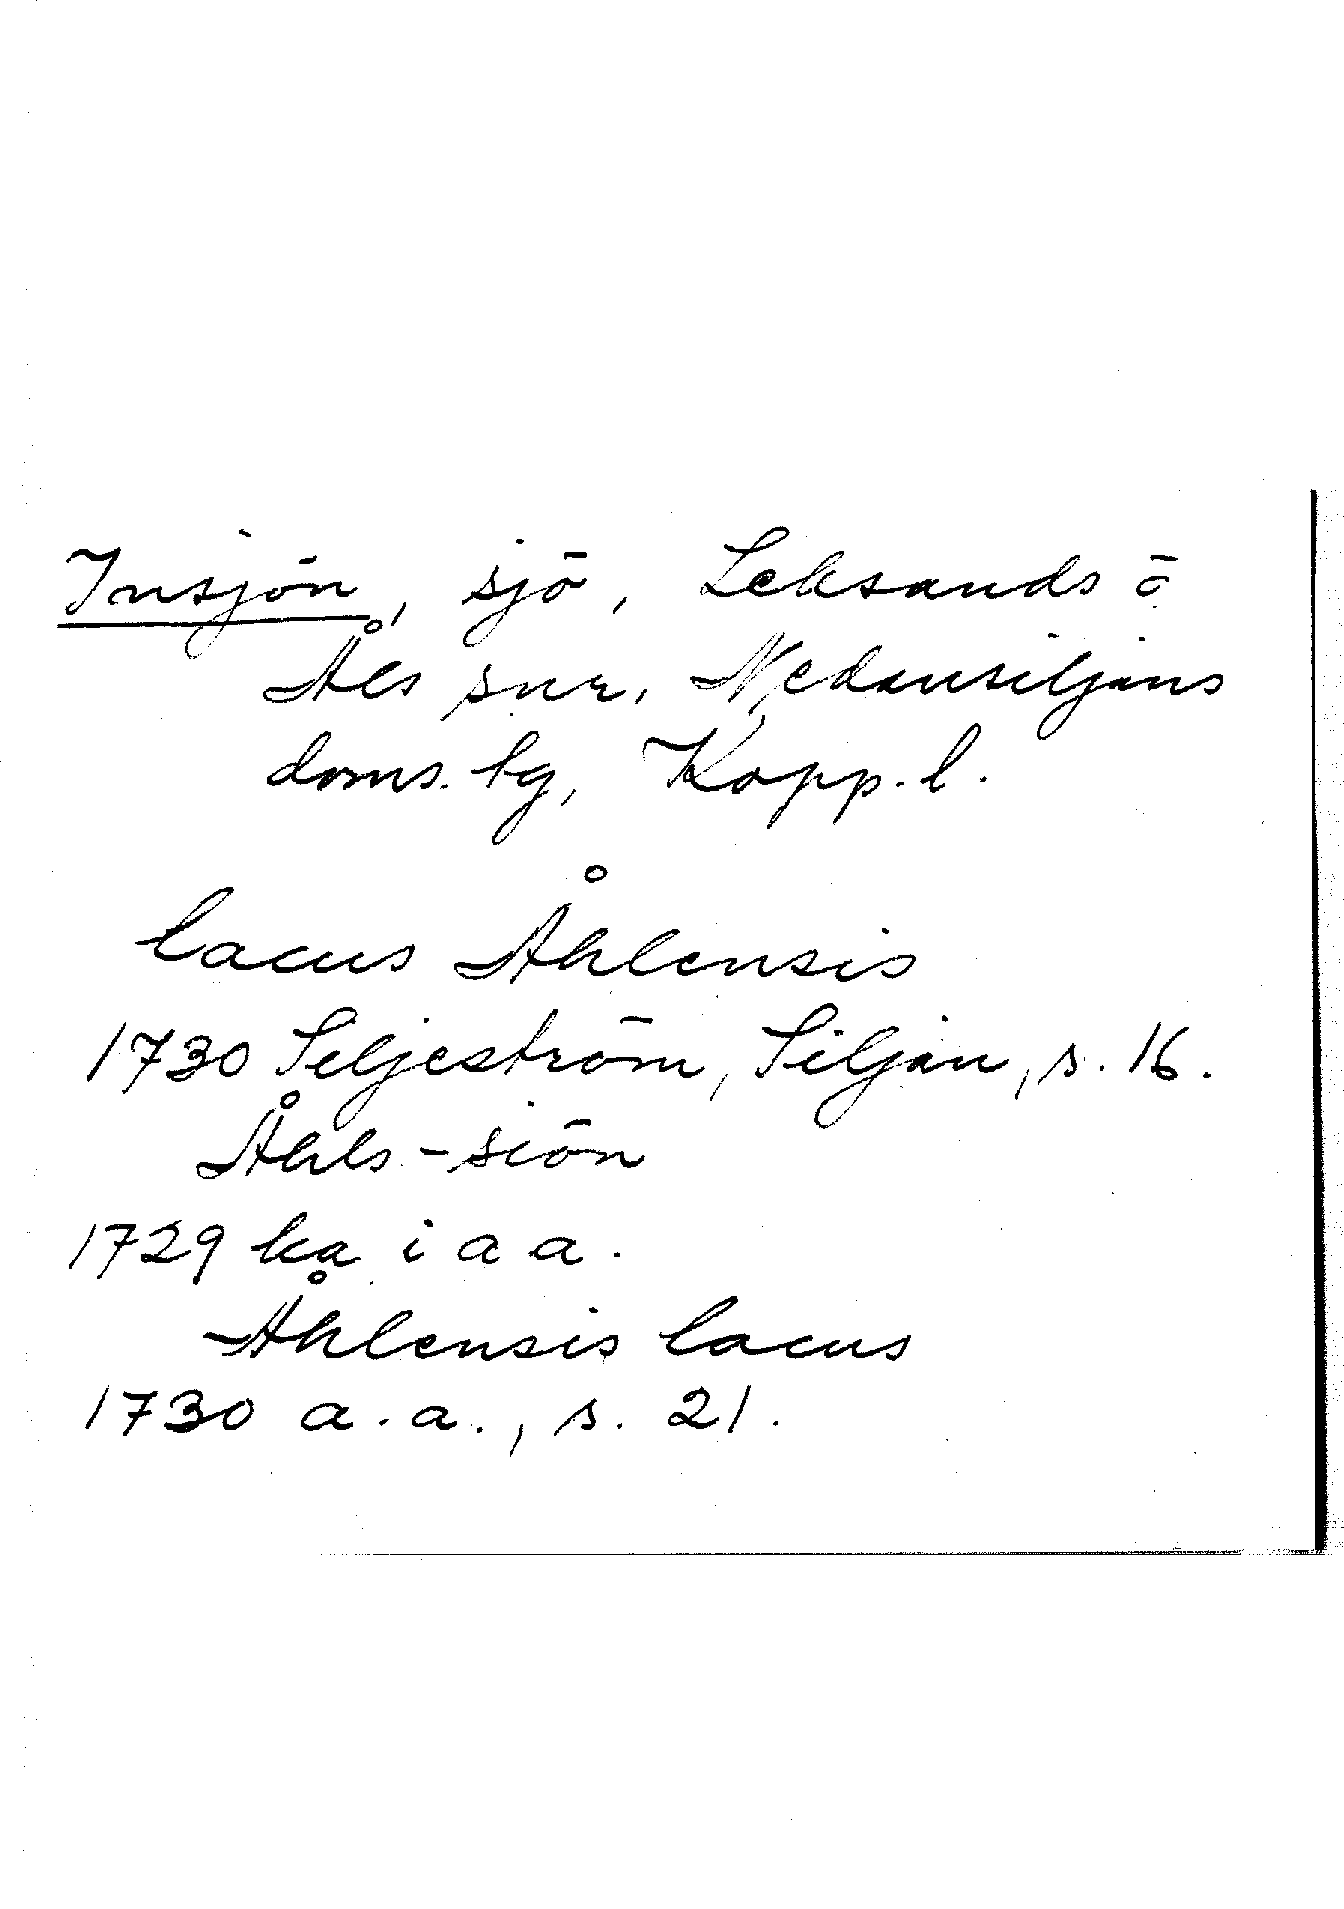 Insjön, sjö, Leksands ö
Åls snr, Nedansiljans
doms. tg, Kopp. l.
lacus Åhlensis
1730 Siljeström, Siljan, s. 16.
Åhls-siön
1729 ka i a a.
Åhlensis lacus
1730 a.a., s. 21.